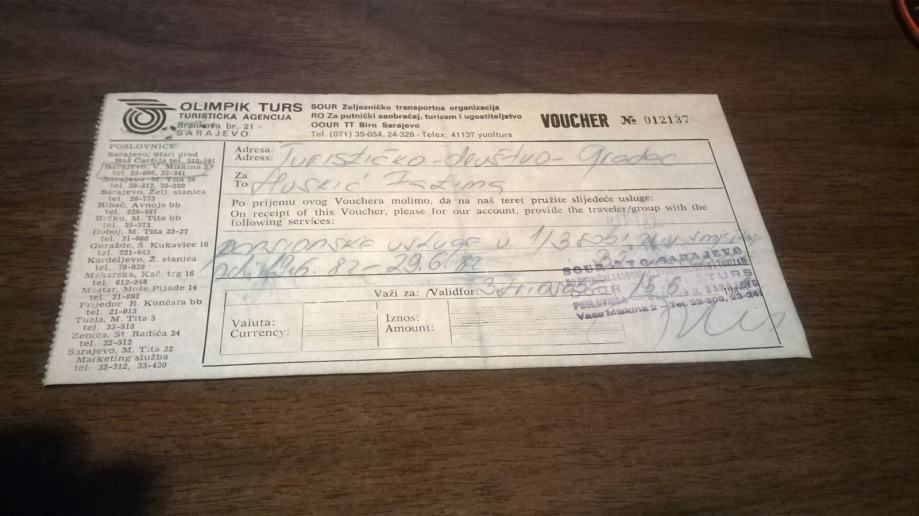 OLIMPIK TURS
TURISTIČKA AGENCIJA
Branilova br. 21 -
SARAJEVO
SOUR Željezničko transportna organizacija
RO Za putnički saobraćaj, turizam i ugostiteljstvo
OOUR TT Biro Sarajevo
Tel. (071) 35-054, 24-328 - Telex: 41137 yuolturs
VOUCHER № 012137
POSLOVNICE:
Sarajevo, Stari grad
Baš Čaršija tel. 512-581
Sarajevo, V. Miskina 2
23-806, 23-241
Sarajevo M. Tita 20
39-212, 35-320
Sarajevo, Želj stanica
tel. 20-773
Bihać, Avnoja bb
tel. 229-487
Brčko, M. Tita bb
tel. 25-372
Doboj, M. Tita 23-27
tel. 21-086
Goražde, S. Kukavice 10
tel. 221-643
Kardeljevo, Ž. stanica
tel. 79-039
Makarska, Kač. trg 16
tel. 612-248
Mostar, Moše Pijade 14
tel. 21-892
Prijedor R. Končara bb
tel. 21-013
Tuzla, M. Tita 5
tel. 33-518
Zenica, St Radića 24
tel. 22-512
Sarajevo, M. Tita 22
Marketing služba
tel. 32-312, 33-430
Adresa:
Adress: Turističko-društvo-Gradac
Za
To Huskić Fatima
Po prijemu ovog Vouchera molimo, da na naš teret pružite slijedeće usluge:
On receipt of this Voucher, please for our account, provide the traveler/group with the
following services:
pansionske usluge u 1/3 sobi
19.6. 82 - 29.6. 82
Važi za: /Validfor: 3
Valuta:
Currency:
Iznos:
Amount:
SOUR ŽTO SARAJEVO
TURS
POSLOVNICA
15.6.
Vase Miskina 2 - Tel. 23-806, 23-241